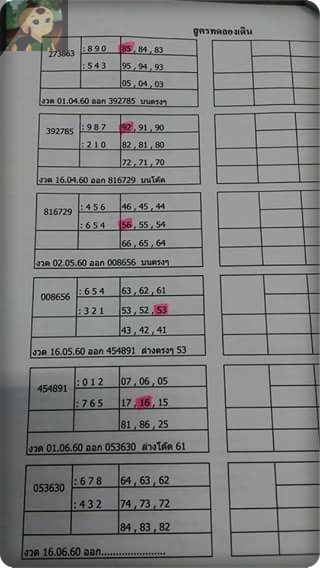 สูตรทดลองเดิน
273863 : 8 9 0 85 , 84 , 83
: 5 4 3 95 , 94 , 93
05 , 04 , 03
งวด 01.04.60 ออก 392785 บนตรงๆ
392785 : 9 8 7 92 , 91 , 90
: 2 1 0 82 , 81 , 80
72 , 71 , 70
งวด 16.04.60 ออก 816729 บนโต๊ด
816729 : 4 5 6 46 , 45 , 44
: 6 5 4 56 , 55 , 54
66 , 65 , 64
งวด 02.05.60 ออก 008656 บนตรงๆ
008656 : 6 5 4 63 , 62 , 61
: 3 2 1 53 , 52 , 53
43 , 42 , 41
งวด 16.05.60 ออก 454891 ล่างตรงๆ 53
454891 : 0 1 2 07 , 06 , 05
: 7 6 5 17 , 16 , 15
81 , 86 , 25
งวด 01.06.60 ออก 053630 ล่างโต๊ด 61
053630 : 6 7 8 64 , 63 , 62
: 4 3 2 74 , 73 , 72
84 , 83 , 82
งวด 16.06.60 ออก......................